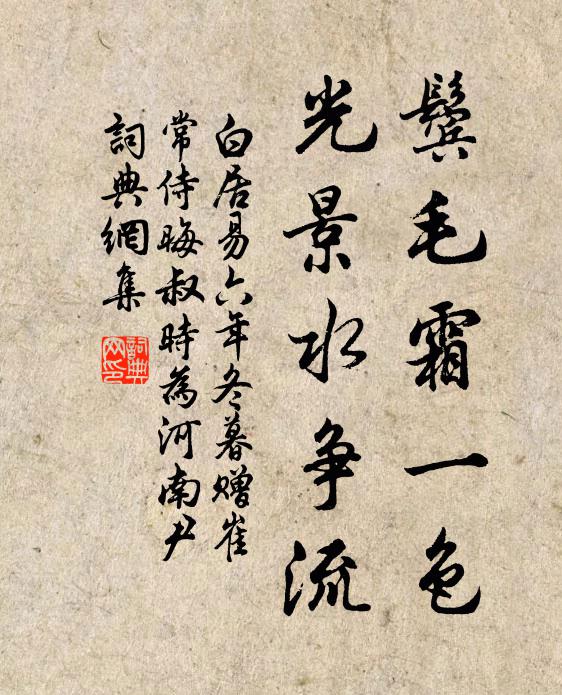 鬓毛霜一色
光景水争流
白居易六年冬暮赠崔
常侍晦叔時為河南尹
詞典網集
詞典網印